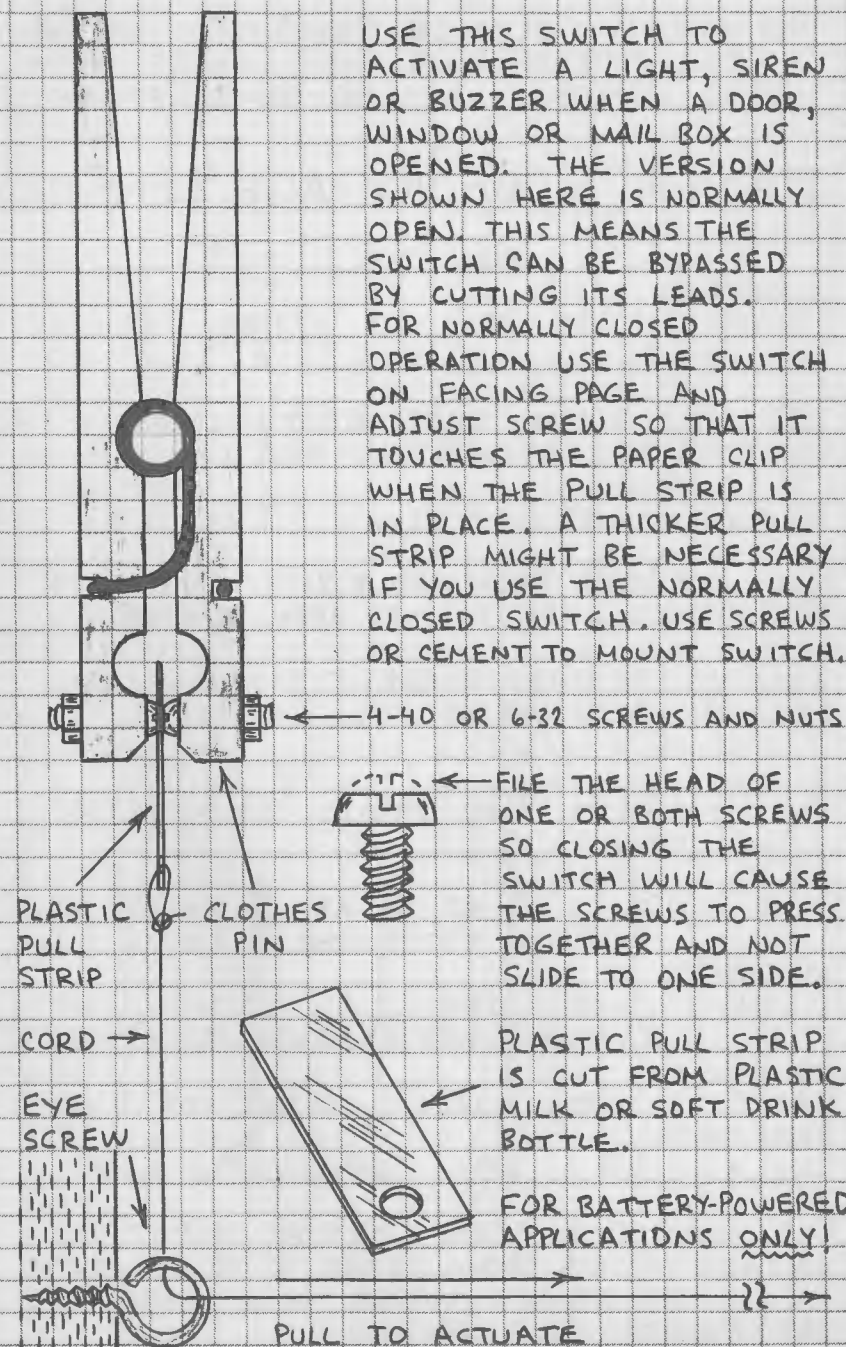 USE THIS SWITCH TO
ACTIVATE A LIGHT, SIREN
OR BUZZER WHEN A DOOR,
WINDOW OR MAIL BOX IS
OPENED. THE VERSION
SHOWN HERE IS NORMALLY
OPEN. THIS MEANS THE
SWITCH CAN BE BYPASSED
BY CUTTING ITS LEADS.
FOR NORMALLY CLOSED
OPERATION USE THE SWITCH
ON FACING PAGE AND
ADJUST SCREW SO THAT IT
TOUCHES THE PAPER CLIP
WHEN THE PULL STRIP IS
IN PLACE. A THICKER PULL
STRIP MIGHT BE NECESSARY
IF YOU USE THE NORMALLY
CLOSED SWITCH. USE SCREWS
OR CEMENT TO MOUNT SWITCH.
4-40 OR 6-32 SCREWS AND NUTS
FILE THE HEAD OF
ONE OR BOTH SCREWS
SO CLOSING THE
SWITCH WILL CAUSE
THE SCREWS TO PRESS
TOGETHER AND NOT
SLIDE TO ONE SIDE.
PLASTIC
PULL
STRIP
CLOTHES
PIN
CORD
EYE
SCREW
PLASTIC PULL STRIP
IS CUT FROM PLASTIC
MILK OR SOFT DRINK
BOTTLE.
FOR BATTERY-POWERED
APPLICATIONS ONLY!
PULL TO ACTUATE